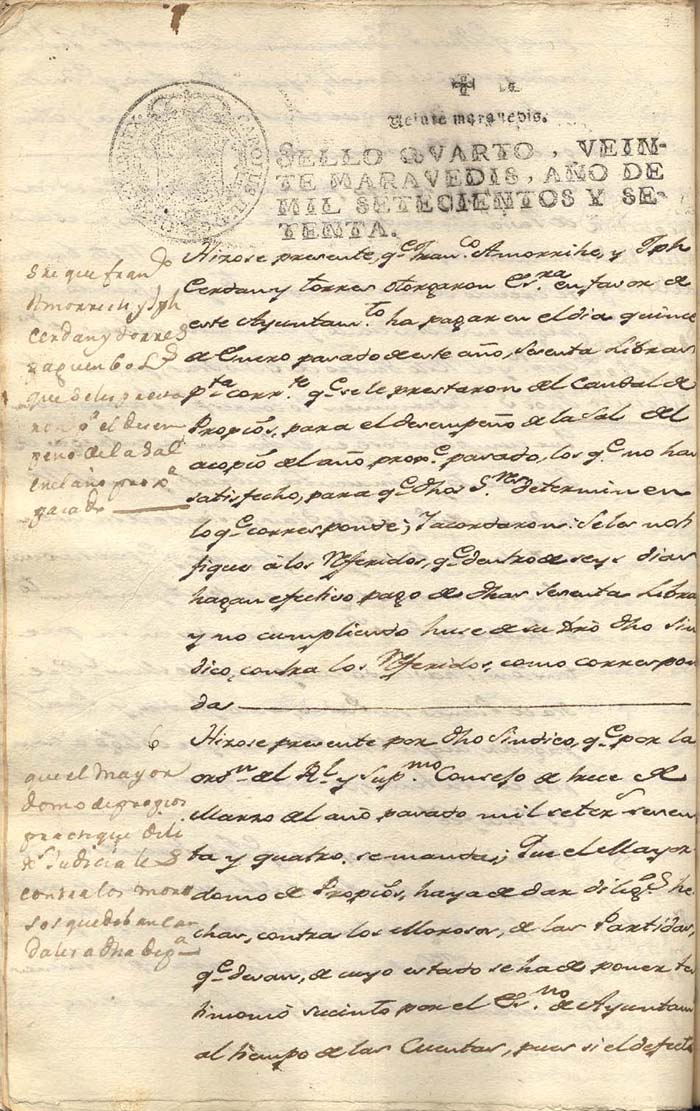 Veinte maravedis.
SELLO QVARTO, VEIN-
TE MARAVEDIS, AÑO DE
MIL SETECIENTOS Y SE-
TENTA.
CAROLUS III D G
Sre que Fran.co
Amorrich y Jph
Cerdan y torres
paguen 60 L.s
que se les presta
ron p.a el desem
peño de la Sal
en el año prox.o
pasado
Hizose presente, q.e Fran.co Amorrihe, y Jph
Cerdan y torres Otorgaron Es.ra en favor de
este Ayuntam.to ha pagar en el dia quince
de Enero pasado de este año, sesenta Libras
p.ta corr.te q.e se le prestaron del Caudal de
Propios, para el desempeño de la Sal del
acopio del año prox.o pasado, los q.e no han
satisfecho, para q.e dhos S.res determinen
lo q.e corresponde; Y acordaron: Se les noti
fique à los Referidos, q.e dentro de seys dias
hagan efectivo pago de dhas sesenta Libras
y no cumpliendo huse de su dro dho Sin
dico, contra los Referidos, como correspon
da
6
que el Mayor
domo de propios
practique dili
s Judiciales
contra los moro
sos que deban can
dales a dha
Hizose presente por dho Sindico, q.e por la
orn del R.l y Sup.mo Consejo de trece de
Marzo del año pasado mil setez.s sesen
ta y quatro se manda; Que el Mayor
domo de Propios, haya de dar dilig.s he
chas, contra los Morosos, de las Partidas,
q.e devan, de cuyo estado se ha de poner tes
timonio sucinto por el Es.no de Ayuntam
al tiempo de las Cuentas, pues si el defecto